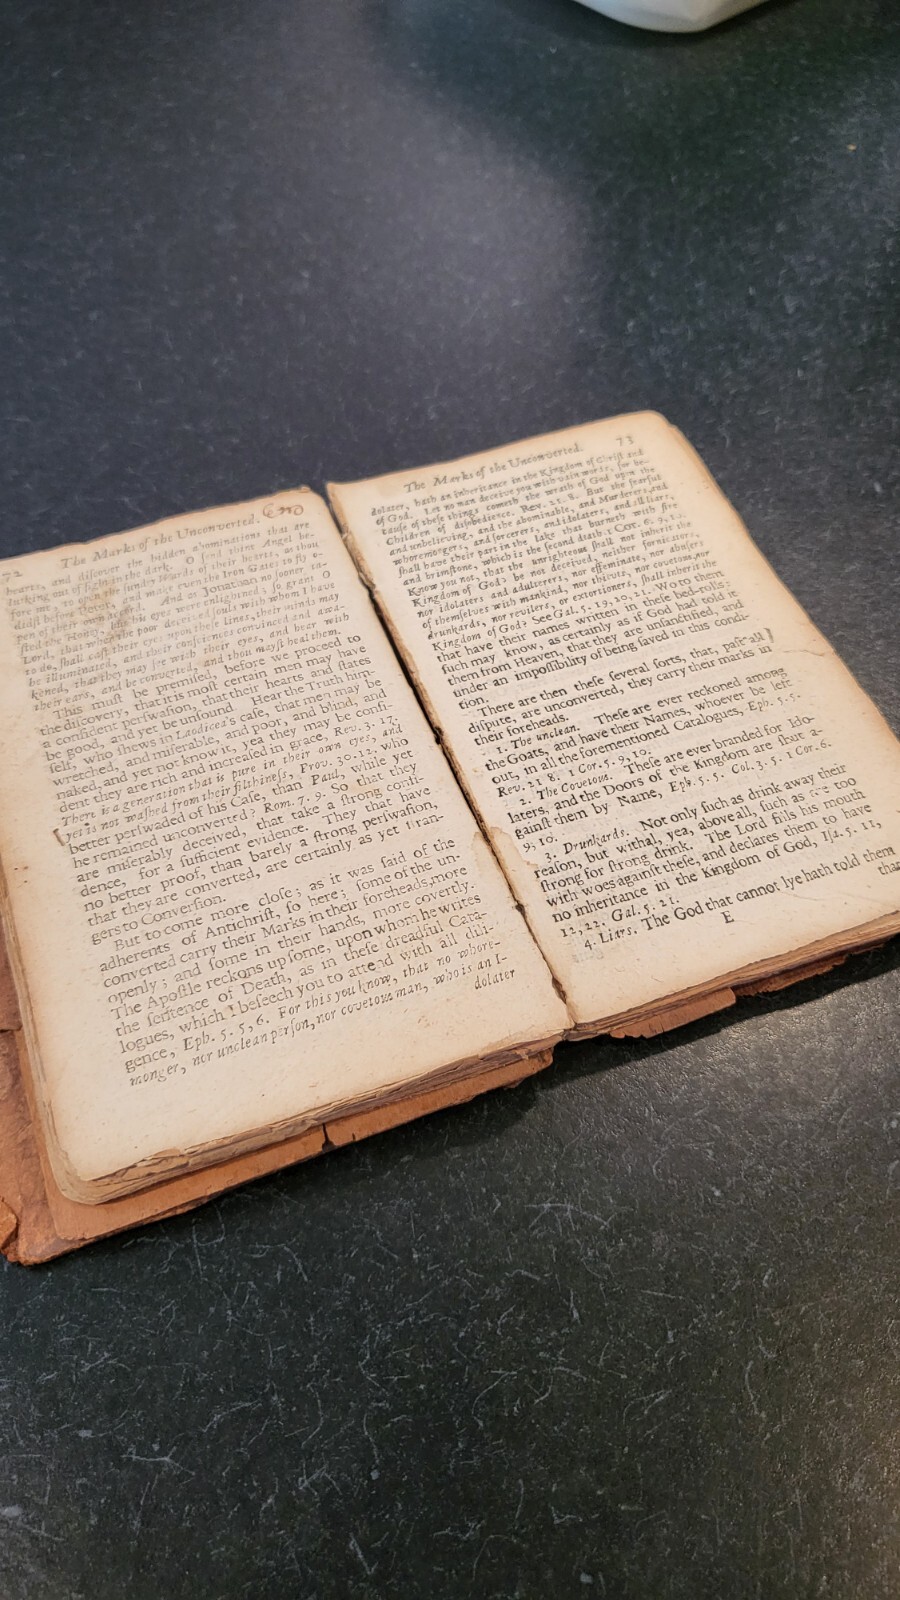 72 The Marks of the Unconverted. End
hearts, and discover the hidden abominations that are
lurking out of ſight in the dark. O ſend thine Angel be-
fore me, to open the ſundry Wards of their hearts, as thou
didſt before Peter, and make even the Iron Gates to fly o-
pen of their own accord. And as Jonathan no ſooner ta-
ſted the Honey, but his eyes were enlightned; ſo grant O
Lord, that when the poor deceived ſouls with whom I have
to do, ſhall caſt their eyes upon theſe lines, their minds may
be illuminated, and their conſciences convinced and awa-
kened, that they may ſee with their eyes, and hear with
their ears, and be converted, and thou mayſt heal them.
This muſt be premiſed, before we proceed to
the diſcovery, that it is moſt certain men may have
a confident perſwaſion, that their hearts and ſtates
be good, and yet be unſound. Hear the Truth him-
ſelf, who ſhews in Laodicea's caſe, that men may be
wretched, and miſerable, and poor, and blind, and
naked, and yet not know it, yea they may be confi-
dent they are rich and increaſed in grace, Rev. 3. 17.
There is a generation that is pure in their own eyes, and
yet is not waſhed from their filthineſs, Prov. 30. 12. who
better perſwaded of his Caſe, than Paul, while yet
he remained unconverted? Rom. 7. 9. So that they
are miſerably deceived, that take a ſtrong confi-
dence, for a ſufficient evidence. They that have
no better proof, than barely a ſtrong perſwaſion,
that they are converted, are certainly as yet ſtran-
gers to Converſion.
But to come more cloſe; as it was ſaid of the
adherents of Antichriſt, ſo here; ſome of the un-
converted carry their Marks in their foreheads, more
openly; and ſome in their hands, more covertly.
The Apoſtle reckons up ſome, upon whom he writes
the ſentence of Death, as in theſe dreadful Cata-
logues, which I beſeech you to attend with all dili-
gence, Eph. 5. 5, 6. For this you know, that no whore-
monger, nor unclean perſon, nor covetous man, who is an I-
dolater
The Marks of the Unconverted. 73
dolater, hath an inheritance in the Kingdom of Chriſt and
of God. Let no man deceive you with vain words, for be-
cauſe of theſe things cometh the wrath of God upon the
Children of diſobedience. Rev. 21. 8. But the fearful
and unbelieving, and the abominable, and Murderers, and
whoremongers, and ſorcerers, and idolaters, and all liars,
ſhall have their part in the lake that burneth with fire
and brimſtone, which is the ſecond death. 1 Cor. 6. 9, 10.
Know you not, that the unrighteous ſhall not inherit the
Kingdom of God? be not deceived, neither fornicators,
nor idolaters and adulterers, nor effeminate, nor abuſers
of themſelves with mankind, nor thieves, nor covetous, nor
drunkards, nor revilers, or extortioners, ſhall inherit the
Kingdom of God? See Gal. 5. 19, 20, 21. Wo to them
that have their names written in theſe bed-rolls:
ſuch may know, as certainly as if God had told it
them from Heaven, that they are unſanctified, and
under an impoſſibility of being ſaved in this condi-
tion.
There are then theſe ſeveral ſorts, that, paſt all
diſpute, are unconverted, they carry their marks in
their foreheads.
1. The unclean. Theſe are ever reckoned among
the Goats, and have their Names, whoever be left
out, in all the forementioned Catalogues, Eph. 5. 5.
Rev. 21 8. 1 Cor. 5. 9, 10.
2. The Covetous. Theſe are ever branded for Ido-
laters, and the Doors of the Kingdom are ſhut a-
gainſt them by Name, Eph. 5. 5. Col. 3. 5. 1 Cor. 6.
9, 10.
3. Drunkards. Not only ſuch as drink away their
reaſon, but withal, yea, above all, ſuch as are too
ſtrong for ſtrong drink. The Lord fills his mouth
with woes againſt theſe, and declares them to have
no inheritance in the Kingdom of God, Iſa. 5. 11,
12, 22. Gal. 5. 21.
4. Liars. The God that cannot lye hath told them
E than